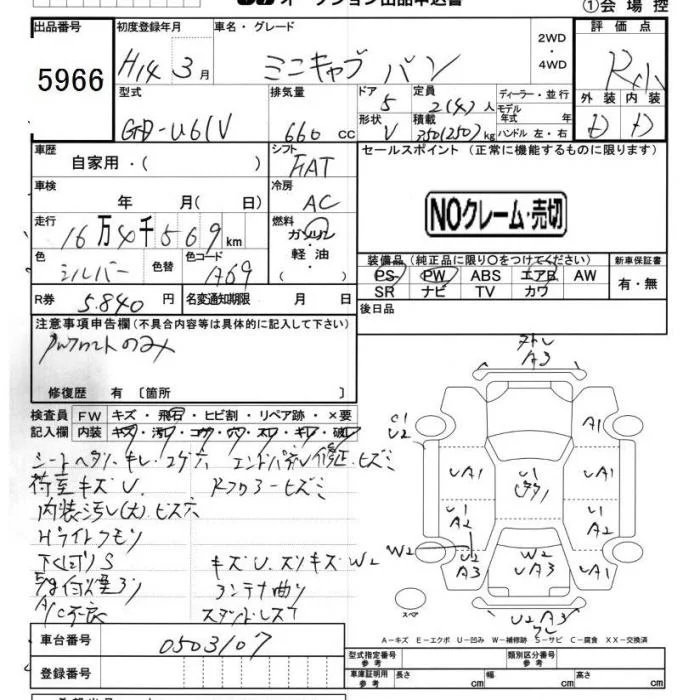 オークション出品申込書
①会場控
出品番号 初度登録年月 車名・グレード 2WD・4WD 評価点
5966 H14 3月 ミニキャブ バン
型式 排気量 ドア 定員 ディーラー・並行 外装 内装
GD-U61V 660 cc 5 2(4)人 モデル年式 年
形状 積載 ハンドル 左・右 D D
V 350(250)kg
車歴 シフト セールスポイント (正常に機能するものに限ります)
自家用・( ) FAT
車検 冷房
年 月( 日) AC NOクレーム・売切
走行 燃料
16万4千569km ガソリン
軽油
( )
色 色替 色コード 装備品(純正品に限り○をつけてください) 新車保証書
シルバー A69 PS PW ABS エアB AW 有・無
SR ナビ TV カワ
R券 5.840円 名変通知期限 月 日 後日品
注意事項申告欄(不具合内容等は具体的に記入して下さい)
PWフロントのみ
修復歴 有 〔箇所 〕
検査員 FW キズ・飛石・ヒビ割・リペア跡・×要
記入欄 内装 キズ・汚レ・コゲ・穴・スレ・キレ・破レ
シートヘタリ・キレ・コゲ穴
荷室キズU
内装汚レ(大)ビス穴
Hライトクモリ
下廻りS キズU.スリキズW2
コンテナ曲り
A/C不良
A3
C1
U2
A1
UA1 U1 UA1
U1
A2 U1
A2
W2 U2
A3 W2
UA3 UA1
U2 A3
スペア
A−キズ E−エクボ U−凹み W−補修跡 S−サビ C−腐食 XX−交換済
車台番号 0503107
登録番号
型式指定番号 参考 類別区分番号 参考
車庫証明用 参考 長さ cm 幅 cm 高さ cm